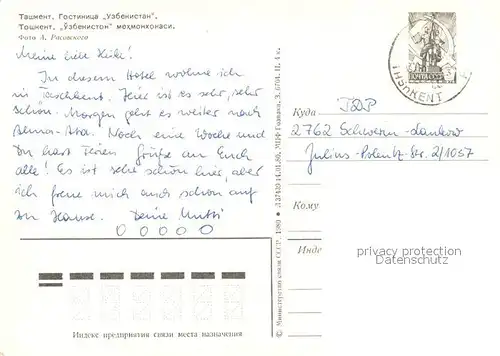 Ташкент. Гостиница „Узбекистан".
Тошкент. „Ўзбекистон" меҳмонхонаси.
Фото А. Расовского
Meine liebe Heike!
In diesem Hotel wohne ich
in Taschkent. Hier ist es sehr, sehr
schön. Morgen geht es weiter nach
Alma-Ata. Noch eine Woche und
Du hast Ferien. Grüße an Euch
alle! Es ist sehr schön hier, aber
ich freue mich auch schon auf
zu Hause. Deine Mutti
O O O O O
Индекс предприятия связи места назначения
© Министерство связи СССР. 1980
TASHKENT
Куда DDR
2762 Schwerin-Lankow
Julius-Polentz-Str. 2/1057
Кому
Инде
privacy protection
Datenschutz